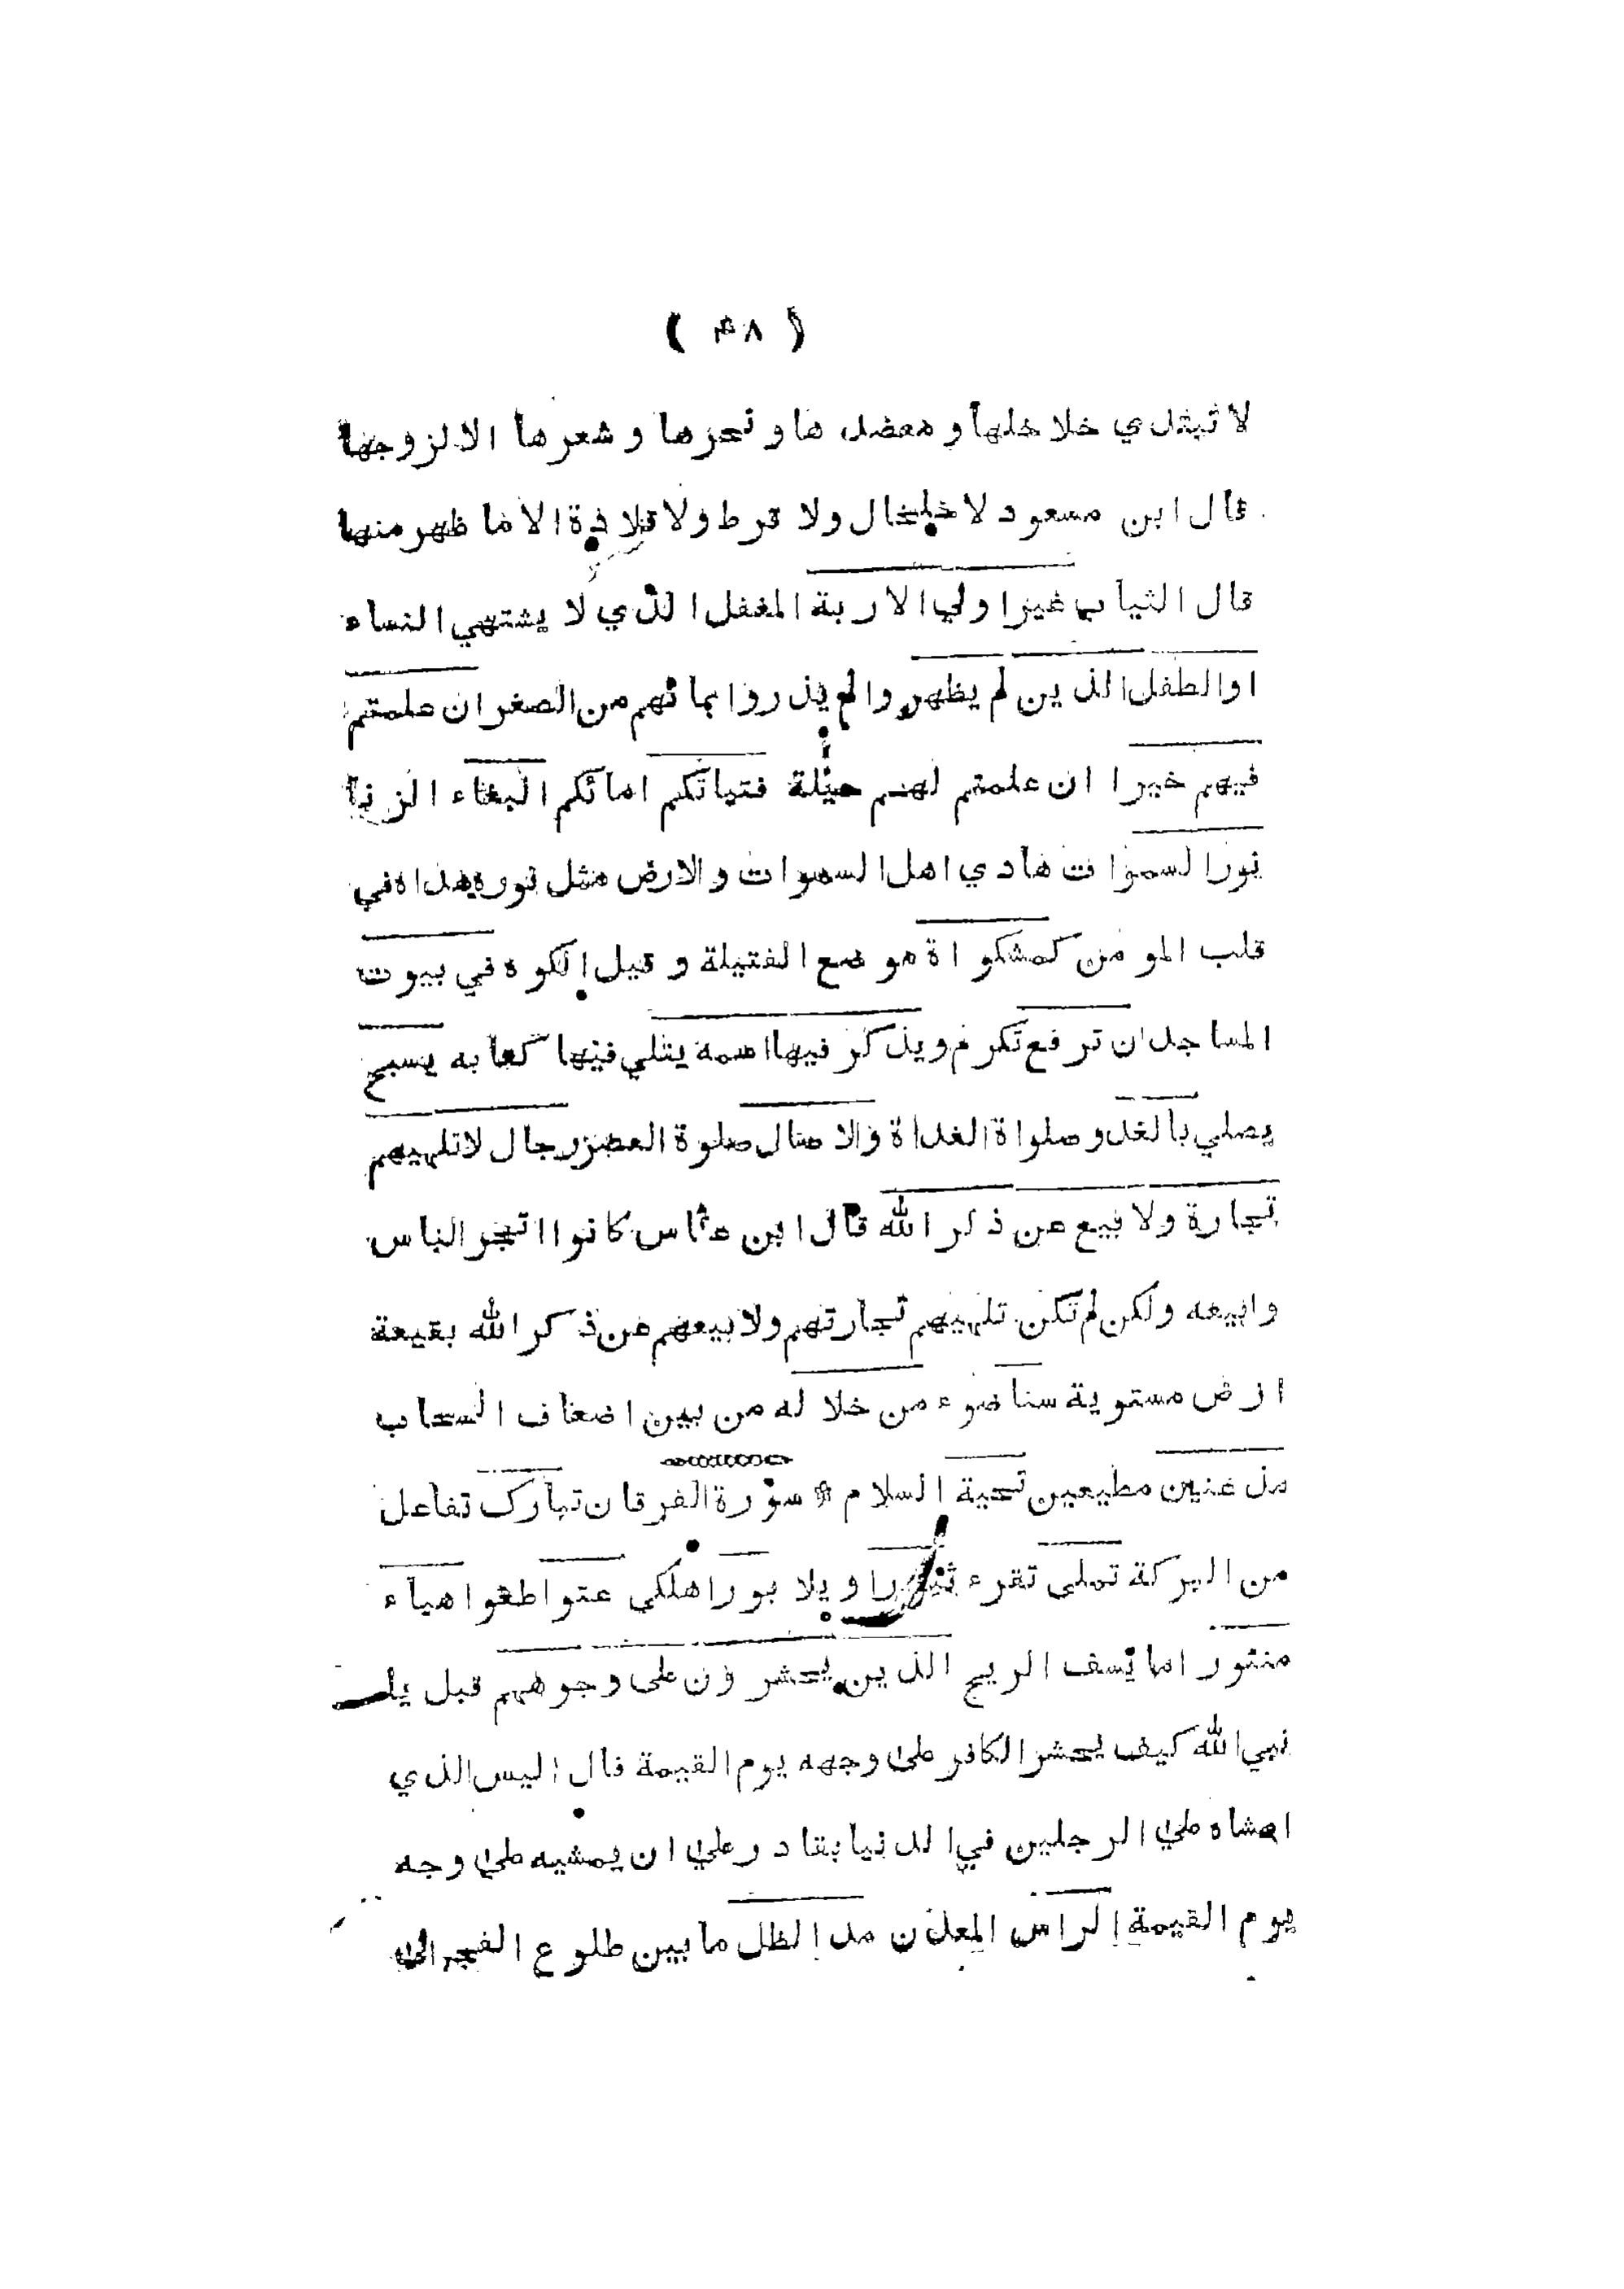 ( ۴۸ )
لا تبتدي خلاخلها و معضدها و نحرها و شعرها الا لزوجها
قال ابن مسعود لا خلخال ولا قرط ولا قلادة الا ما ظهر منها
قال الثياب غير اولي الاربة المغفل الذي لا يشتهي النساء
او الطفل الذين لم يظهروا لم يدروا بما تهم من الصغر ان علمتم
فيهم خيرا ان علمتم لهم حيلة فتياتكم امائكم البغاء الزنا
نور السموات هادي اهل السموات والارض مثل نوره هداه في
قلب المومن كمشكواة موضع الفتيلة و قيل الكوه في بيوت
المساجد ان ترفع تكرم ويذكر فيها اسمه يتلي فيها كتابه يسبح
يصلي بالغدو صلواة الغداة والاصال صلوة العصر رجال لا تلهيهم
تجارة ولا بيع عن ذكر الله قال ابن عباس كانوا اتجر الناس
وابيعه ولكن لم تكن تلهيهم تجارتهم ولا بيعهم عن ذكر الله بقيعة
ارض مستوية سنا ضوء من خلاله من بين اضعاف السحاب
مذعنين مطيعين تحية السلام * سورة الفرقان تبارک تفاعل
من البركة تملى تقرء ثبورا ويلا بورا هلكى عتوا طغوا هباء
منثورا ما يسف الريح الذين يحشرون على وجوههم قبل يا
نبي الله كيف يحشر الكافر على وجهه يوم القيمة قال اليس الذي
امشاه علي الرجلين في الدنيا بقادر علي ان يمشيه علي وجهه
يوم القيمة الراس المعدن مد الظل ما بين طلوع الفجر الى